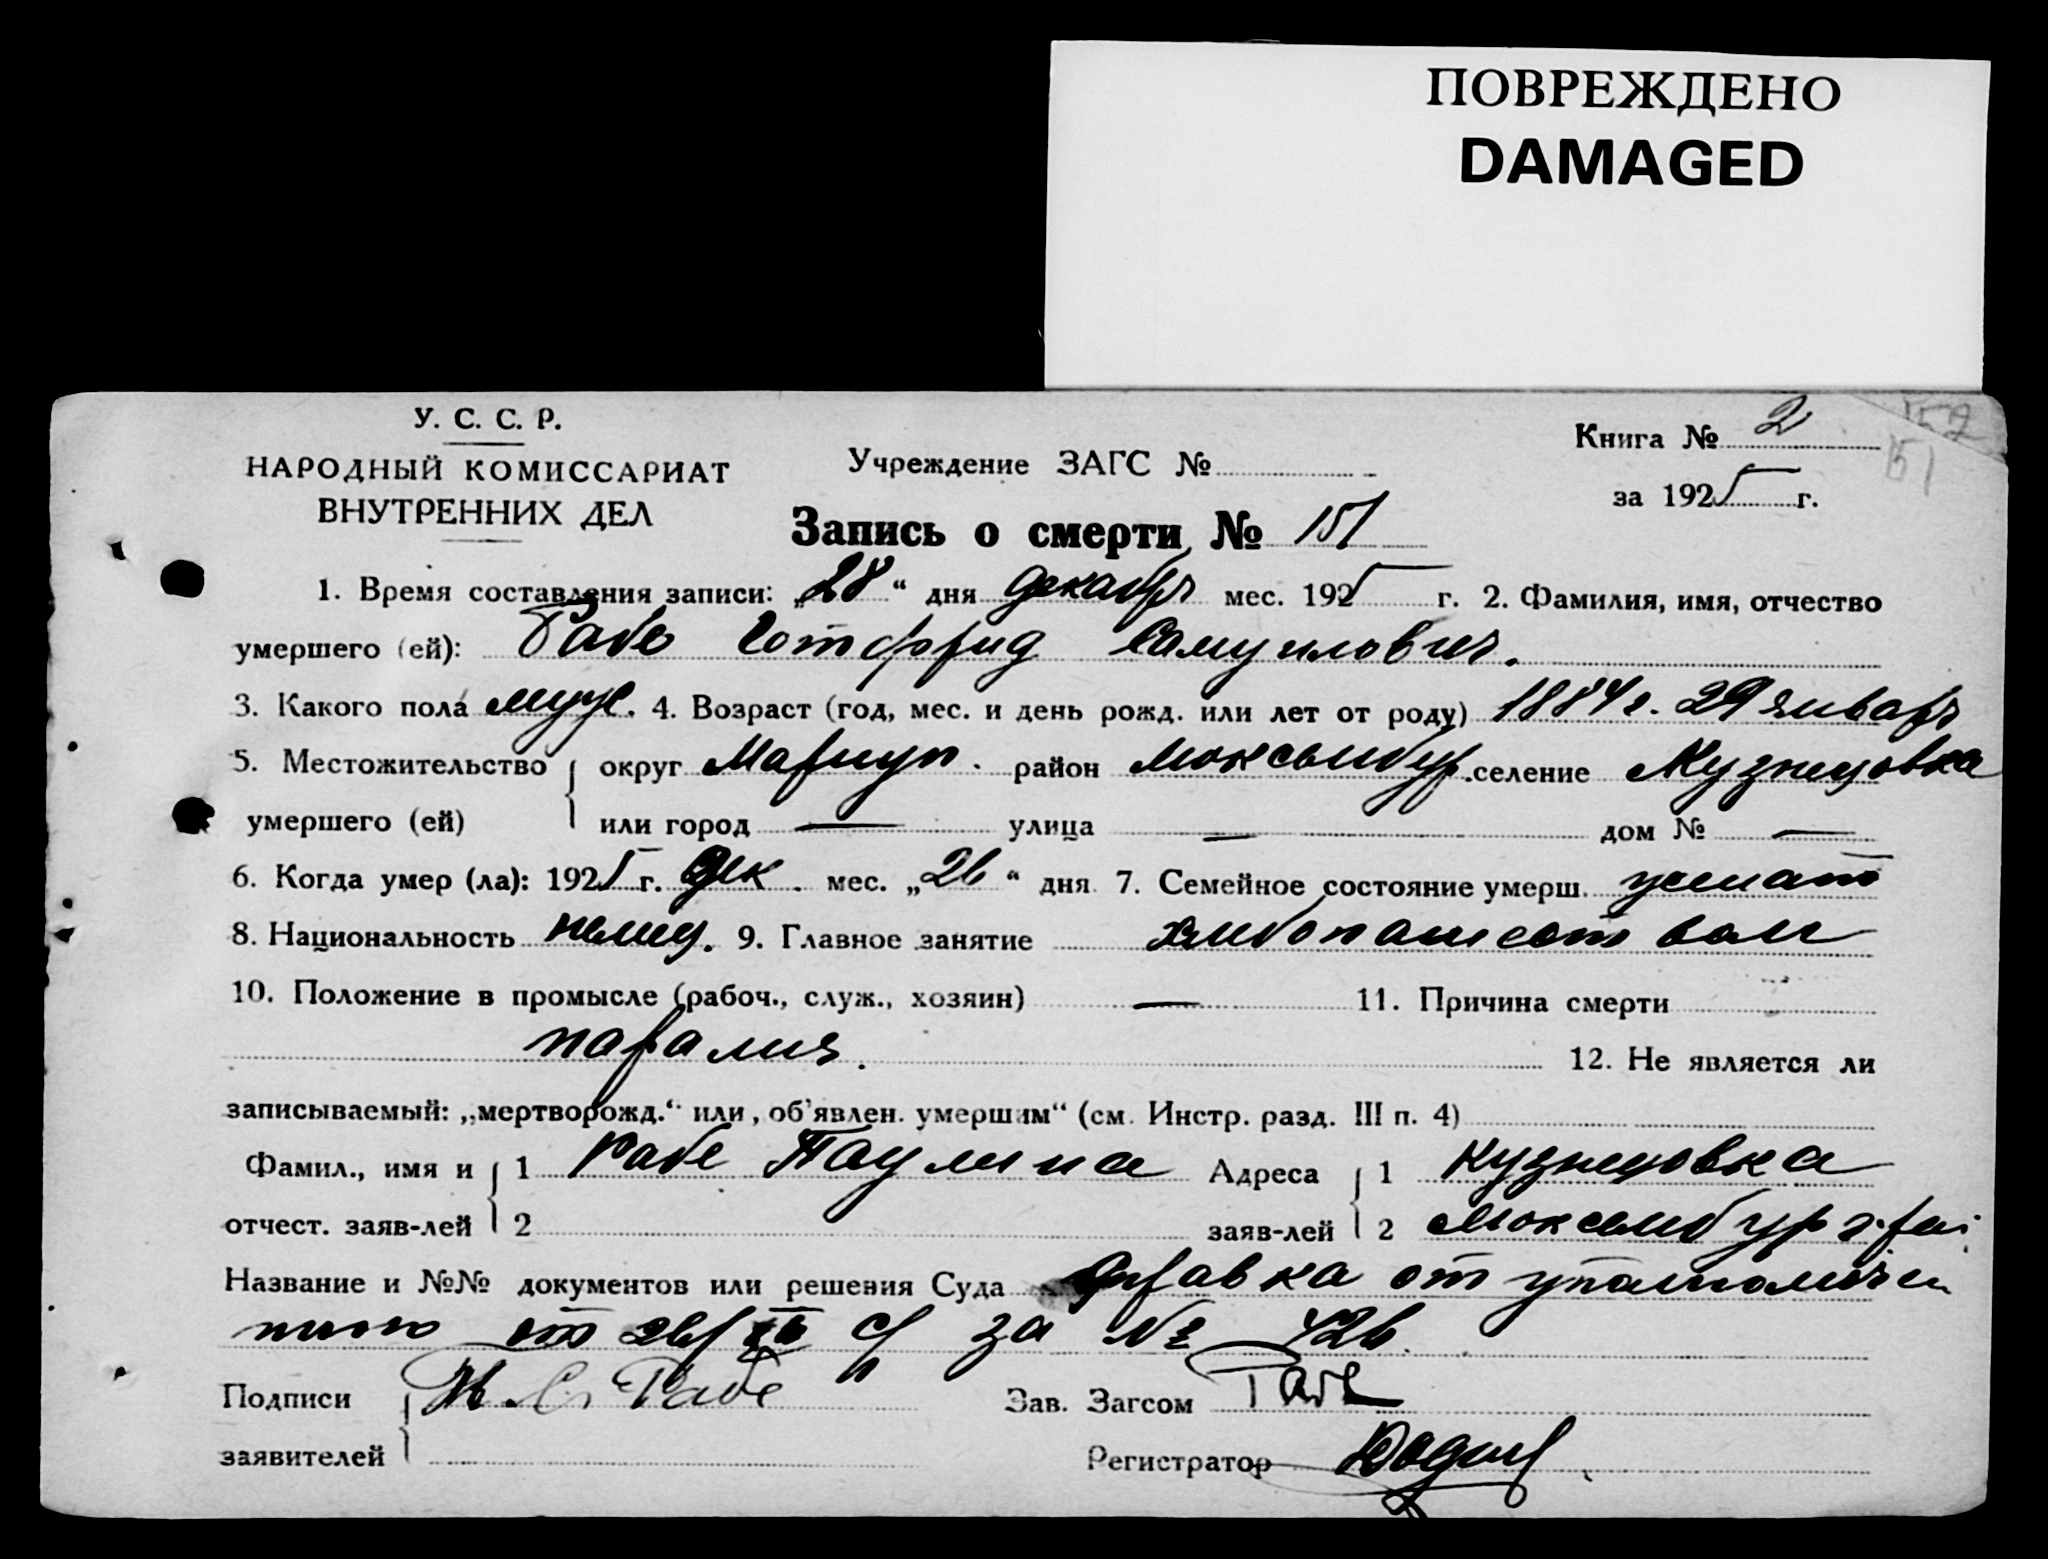 ПОВРЕЖДЕНО
DAMAGED
У. С. С. Р.
НАРОДНЫЙ КОМИССАРИАТ
ВНУТРЕННИХ ДЕЛ
Учреждение ЗАГС №
Книга № 2
52
151
за 1925 г.
Запись о смерти № 151
1. Время составления записи: „28“ дня декабря мес. 1925 г. 2. Фамилия, имя, отчество
умершего (ей): Рабе Готфрид Самуилович.
3. Какого пола муж. 4. Возраст (год, мес. и день рожд. или лет от роду) 1884 г. 29 января
5. Местожительство округ Мариуп. район Люксембург. селение Кузнецовка
умершего (ей) или город — улица — дом № —
6. Когда умер (ла): 1925 г. дек. мес. „26“ дня 7. Семейное состояние умерш. женат
8. Национальность немец. 9. Главное занятие хлибопашеством
10. Положение в промысле (рабоч., служ., хозяин) — 11. Причина смерти
паралич. 12. Не является ли
записываемый: „мертворожд.“ или „об'явлен. умершим“ (см. Инстр. разд. III п. 4)
Фамил., имя и 1 Рабе Паулина Адреса 1 Кузнецовка
отчест. заяв-лей 2 заяв-лей 2 Люксембург. рай.
Название и №№ документов или решения Суда справка от уполномочен
ного от 26/XII с/г за № 426.
Подписи Рабе Зав. Загсом
заявителей Регистратор